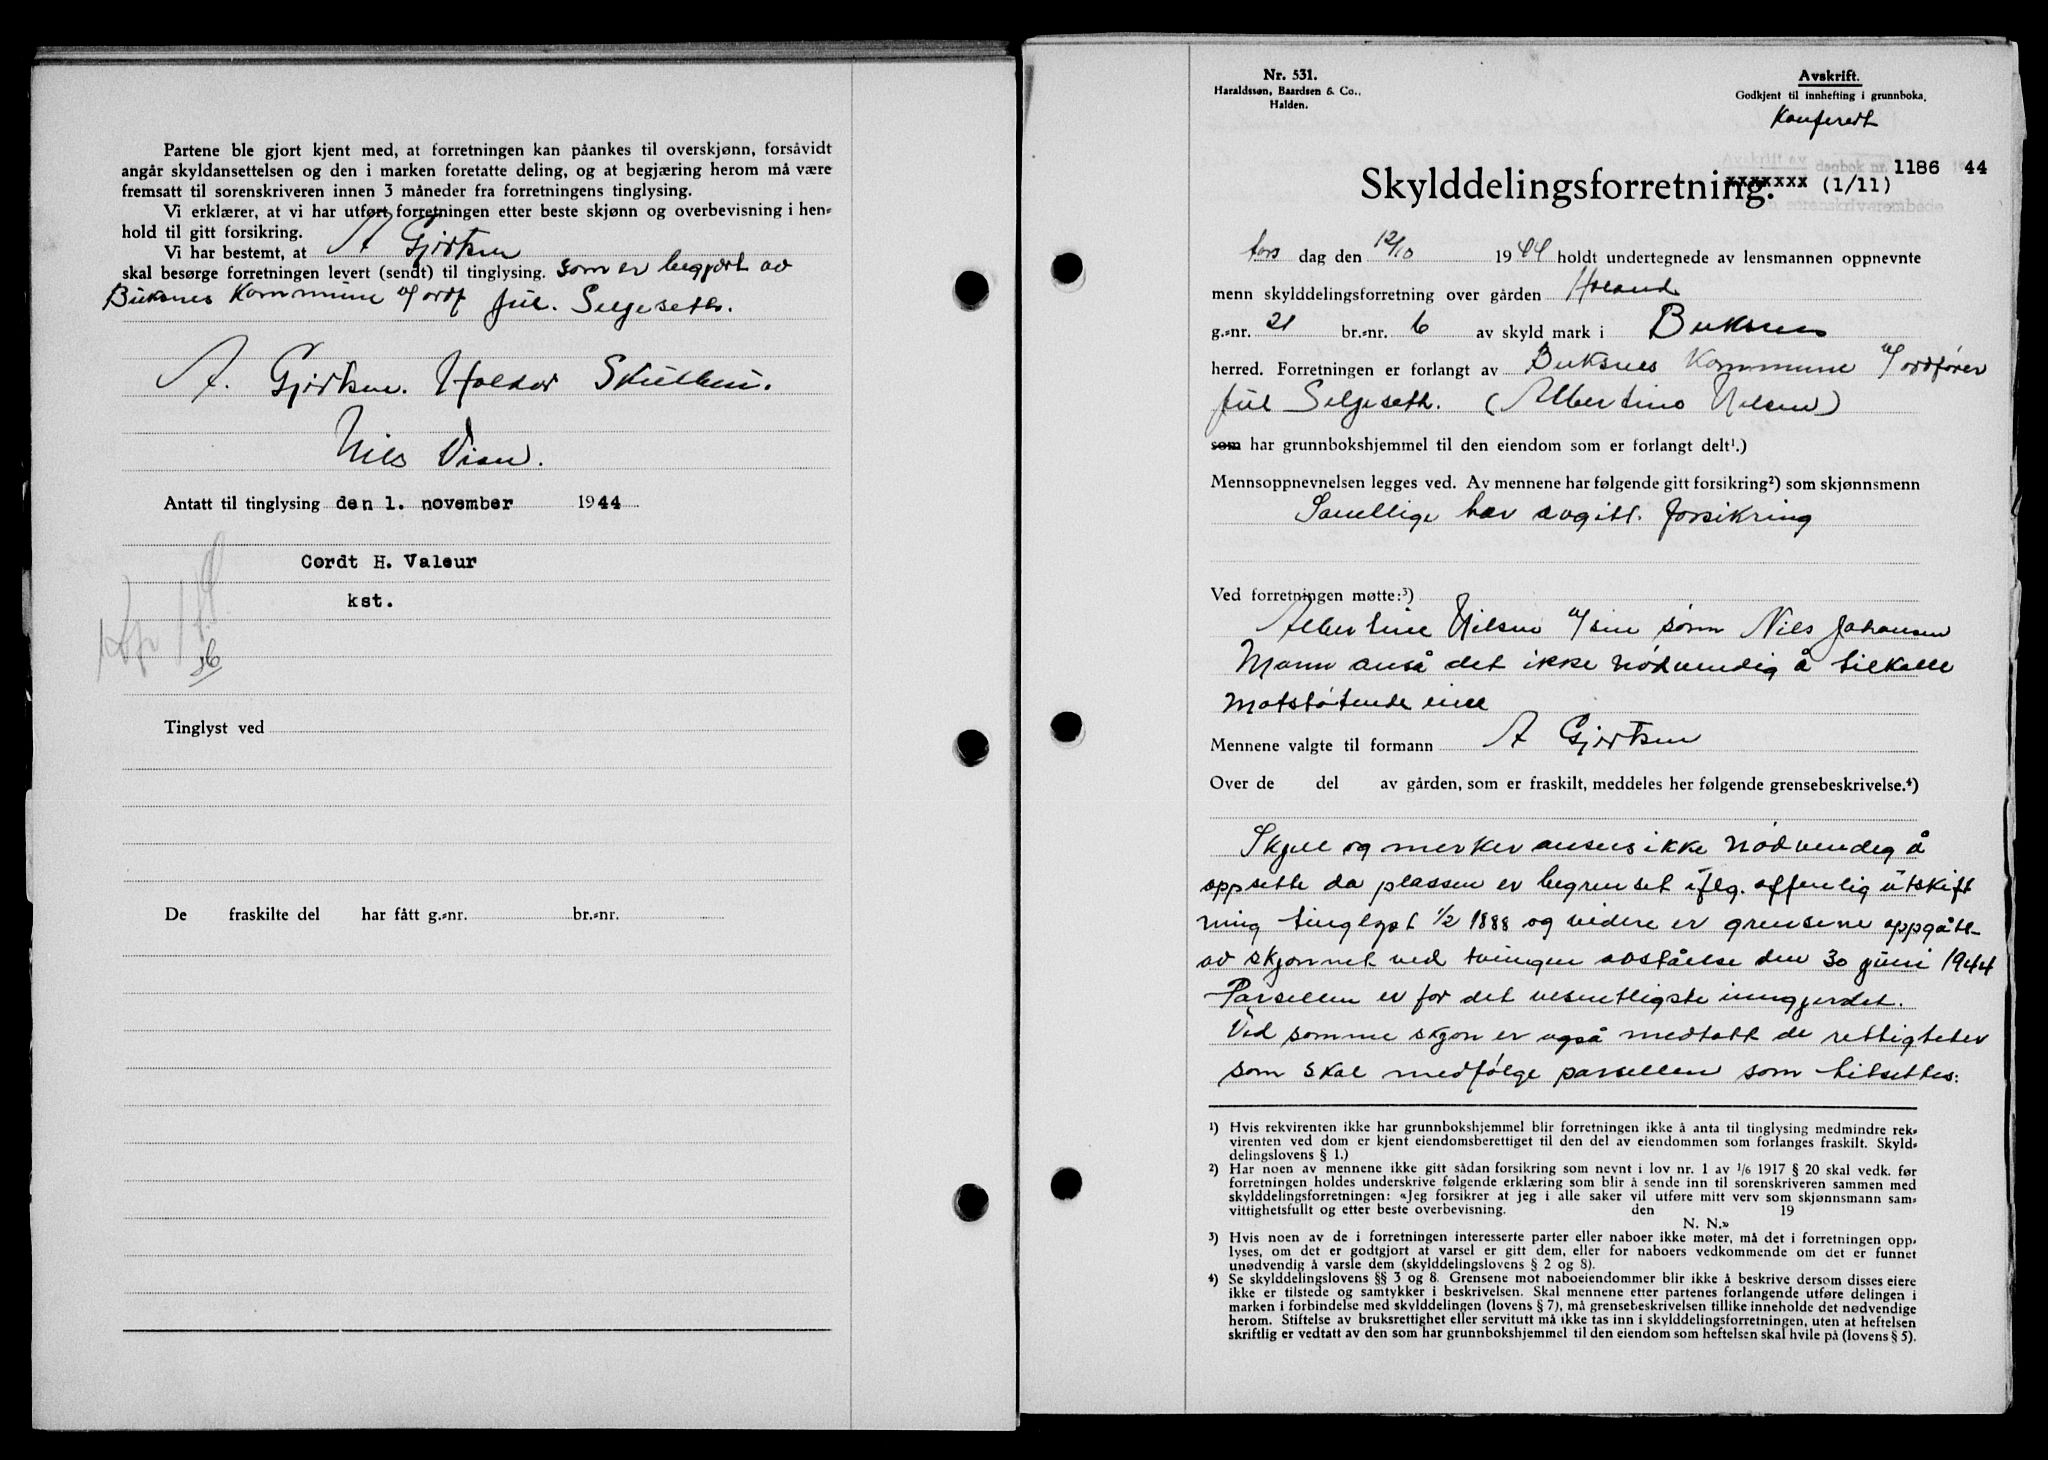 Partene ble gjort kjent med, at forretningen kan påankes til overskjønn, forsåvidt
angår skyldansettelsen og den i marken foretatte deling, og at begjæring herom må være
fremsatt til sorenskriveren innen 3 måneder fra forretningens tinglysing.
Vi erklærer, at vi har utført forretningen etter beste skjønn og overbevisning i hen-
hold til gitt forsikring.
Vi har bestemt, at A Gjertsen
skal besørge forretningen levert (sendt) til tinglysing. som er begjært av
Buksnes Kommune v/ ordf Jul. Selgeseth.
A. Gjertsen. Haldor
Nils
Antatt til tinglysing den 1. november 1944
Cordt H. Valeur
kst.
Tinglyst ved
De fraskilte del har fått g.-nr. br.-nr.
Nr. 531.
Haraldssøn, Baardsen & Co.,
Halden.
Avskrift.
Godkjent til innhefting i grunnboka.
Konferert
dagbok nr. 1186 44
Skylddelingsforretning. xxxxxxx (1/11)
sorenskriverembede
tors dag den 12/10 1944 holdt undertegnede av lensmannen oppnevnte
menn skylddelingsforretning over gården Holand
g.-nr. 21 br.-nr. 6 av skyld mark i Buksnes
herred. Forretningen er forlangt av Buksnes Kommune v/ ordfører
Jul Selgeseth. (Albertine Nilsen)
som har grunnbokshjemmel til den eiendom som er forlangt delt¹.)
Mennsoppnevnelsen legges ved. Av mennene har følgende gitt forsikring²) som skjønnsmenn
Samtlige har avgitt forsikring
Ved forretningen møtte:³)
Albertine Nilsen v/ sin sønn Nils Johansen
Mann anså det ikke nødvendig å tilkalle
motstøtende eiere
Mennene valgte til formann A Gjertsen
Over de del av gården, som er fraskilt, meddeles her følgende grensebeskrivelse.⁴)
Skjel og merker ansees ikke nødvendig å
oppsette da plassen er begrenset iflg. offentlig utskift
ning tinglyst 1/2 1888 og videre er grensene oppgått
av skjønnet ved tvungen avståelse den 30 juni 1944
Parsellen er for det vesentligste inngjerdet.
Ved samme skjøn er også medtatt de rettigheter
som skal medfølge parsellen som hitsettes:
¹) Hvis rekvirenten ikke har grunnbokshjemmel blir forretningen ikke å anta til tinglysing medmindre rek-
virenten ved dom er kjent eiendomsberettiget til den del av eiendommen som forlanges fraskilt. Skyld-
delingslovens § 1.)
²) Har noen av mennene ikke gitt sådan forsikring som nevnt i lov nr. 1 av 1/6 1917 § 20 skal vedk. før
forretningen holdes underskrive følgende erklæring som blir å sende inn til sorenskriveren sammen med
skylddelingsforretningen: «Jeg forsikrer at jeg i alle saker vil utføre mitt verv som skjønnsmann sam-
vittighetsfullt og etter beste overbevisning. den 19
N. N.»
³) Hvis noen av de i forretningen interesserte parter eller naboer ikke møter, må det i forretningen opp-
lyses, om det er godtgjort at varsel er gitt dem, eller for naboers vedkommende om det er funnet
unødvendig å varsle dem (skylddelingslovens § 2 og 8).
⁴) Se skylddelingslovens §§ 3 og 8. Grensene mot naboeiendommer blir ikke å beskrive dersom disses eiere
ikke er tilstede og samtykker i beskrivelsen. Skal mennene etter partenes forlangende utføre delingen i
marken i forbindelse med skylddelingen (lovens § 7), må grensebeskrivelsen tillike inneholde det nødvendige
herom. Stiftelse av bruksrettighet eller servitutt må ikke tas inn i skylddelingsforretningen, uten at heftelsen
skriftlig er vedtatt av den som har grunnbokshjemmel til den eiendom som heftelsen skal hvile på (lovens § 5).